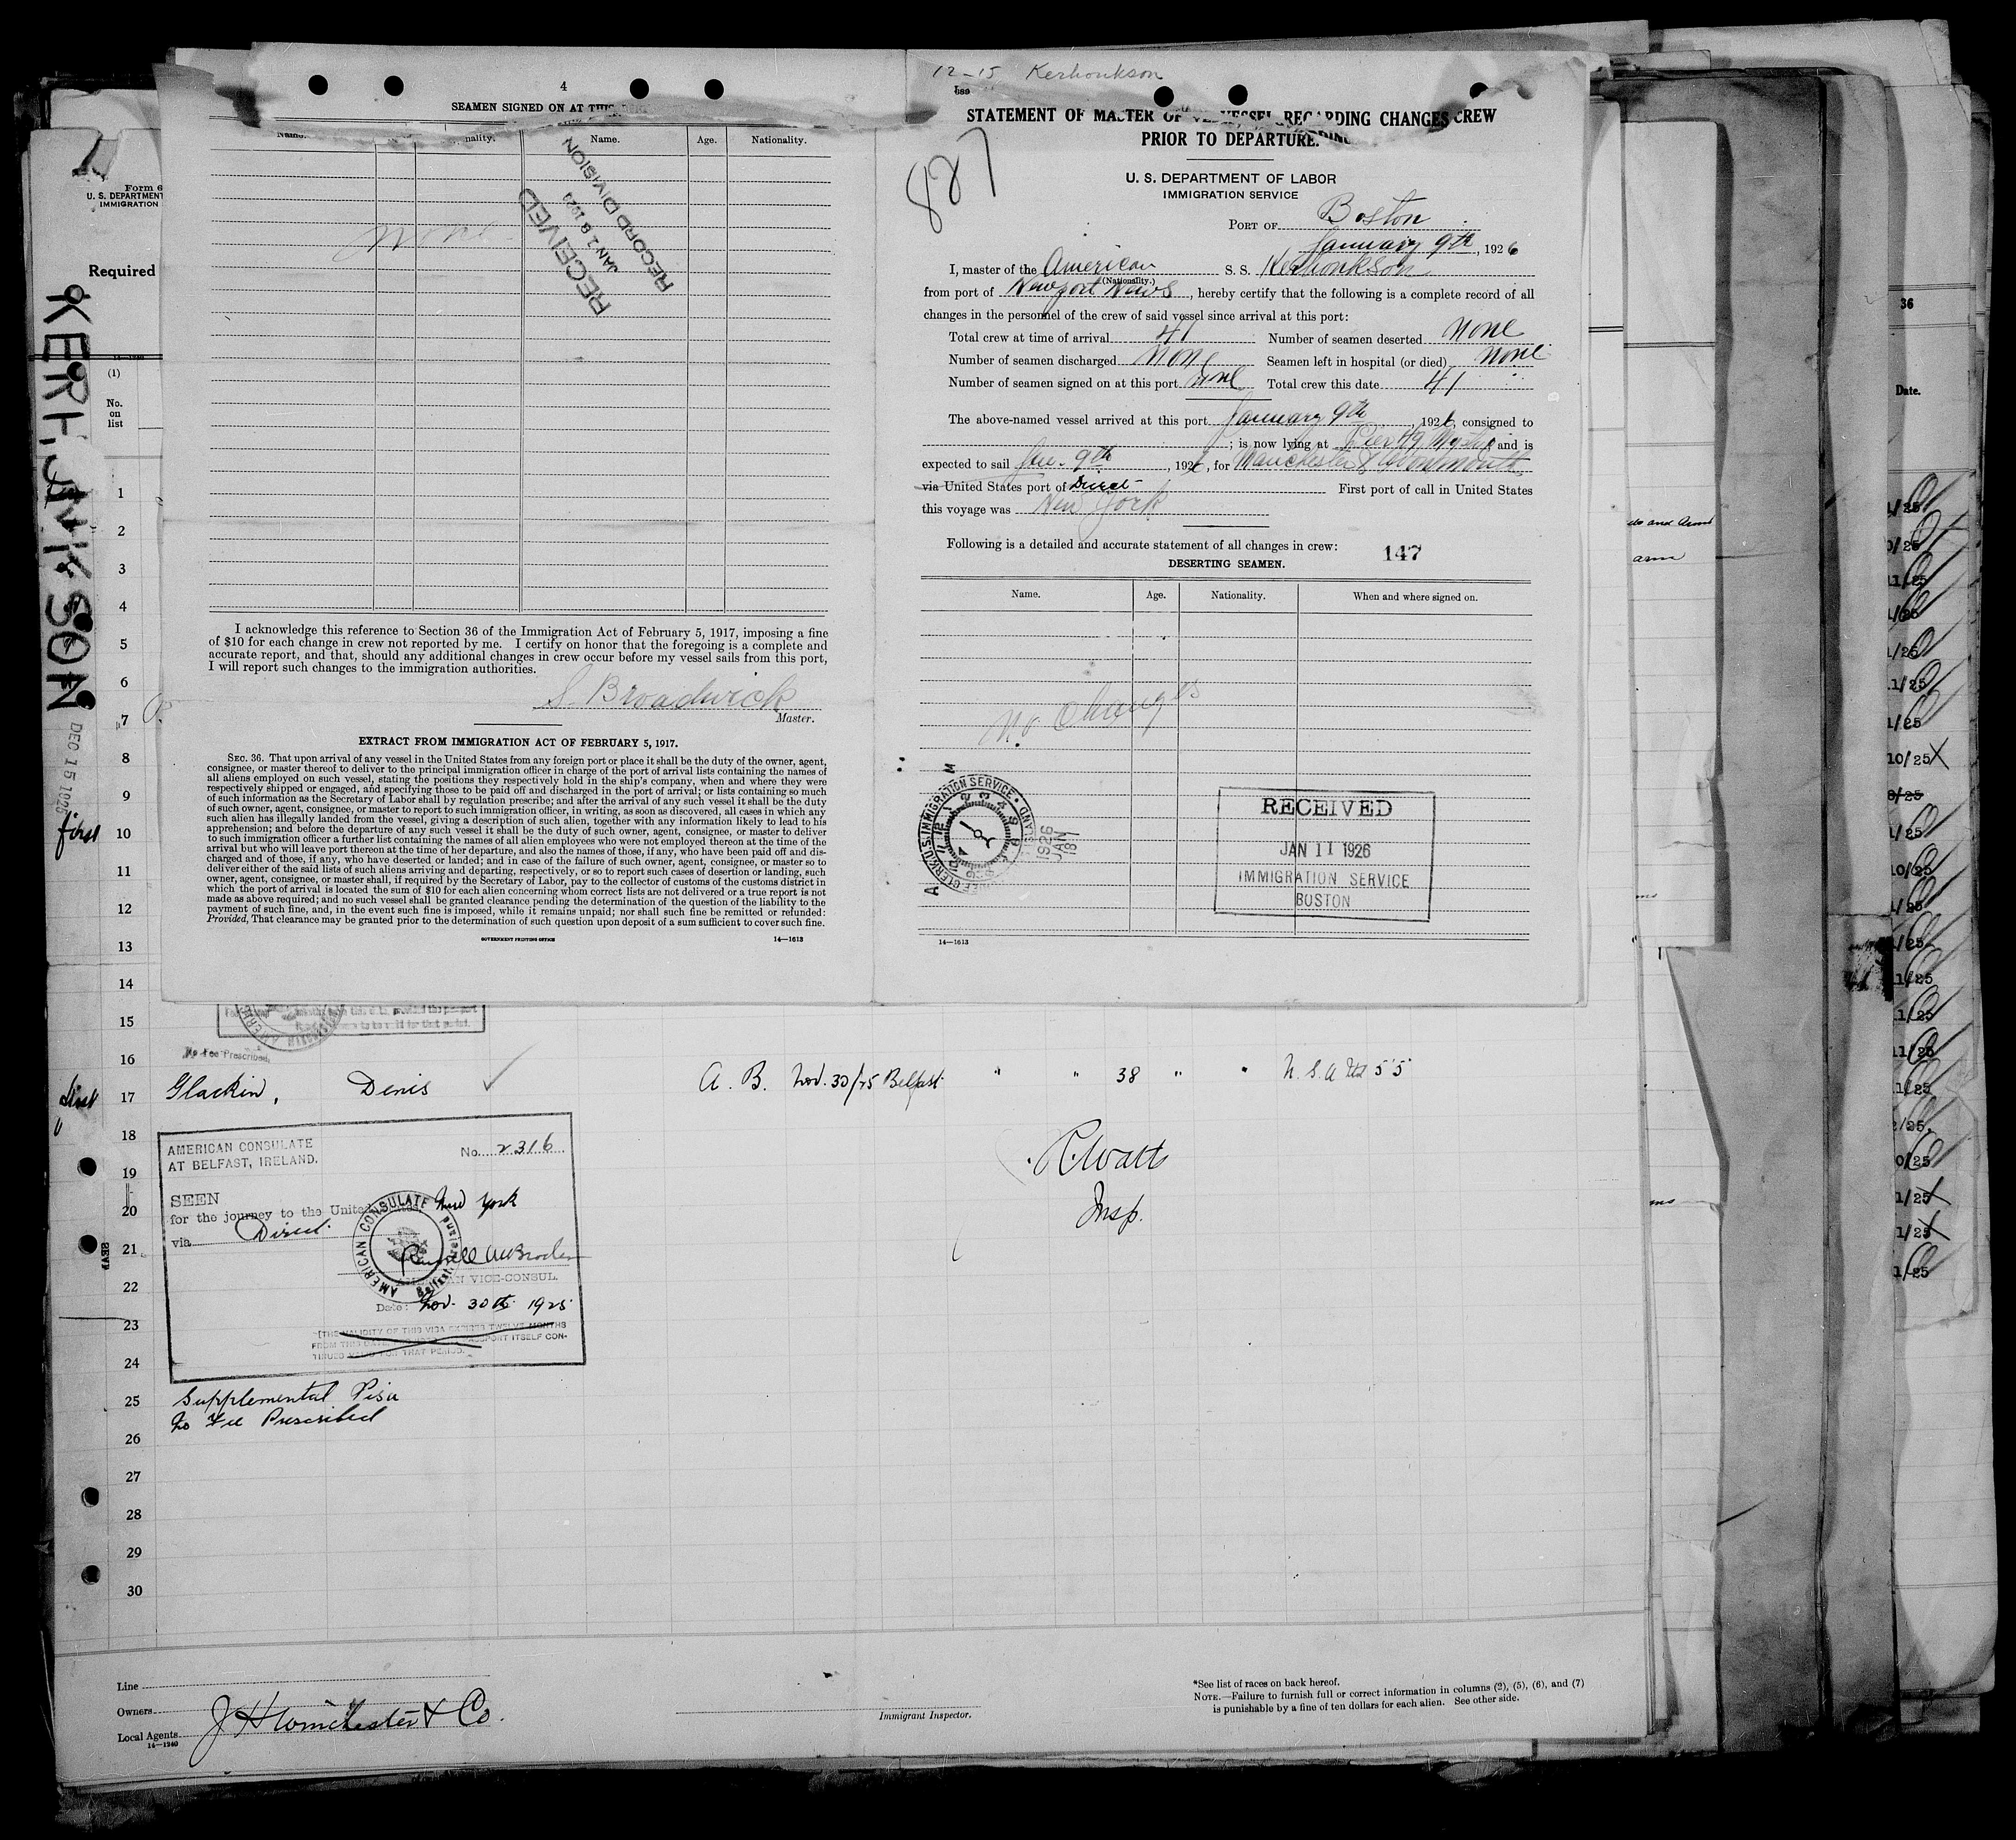 4
SEAMEN SIGNED ON AT THIS
Name. Age. Nationality.
none
RECEIVED
JAN 18 1926
RECORD DIVISION
I acknowledge this reference to Section 36 of the Immigration Act of February 5, 1917, imposing a fine
of $10 for each change in crew not reported by me. I certify on honor that the foregoing is a complete and
accurate report, and that, should any additional changes in crew occur before my vessel sails from this port,
I will report such changes to the immigration authorities.
S. Broadwick
Master.
EXTRACT FROM IMMIGRATION ACT OF FEBRUARY 5, 1917.
SEC. 36. That upon arrival of any vessel in the United States from any foreign port or place it shall be the duty of the owner, agent,
consignee, or master thereof to deliver to the principal immigration officer in charge of the port of arrival lists containing the names of
all aliens employed on such vessel, stating the positions they respectively hold in the ship's company, when and where they were
respectively shipped or engaged, and specifying those to be paid off and discharged in the port of arrival; or lists containing so much
of such information as the Secretary of Labor shall by regulation prescribe; and after the arrival of any such vessel it shall be the duty
of such owner, agent, consignee, or master to report to such immigration officer, in writing, as soon as discovered, all cases in which any
such alien has illegally landed from the vessel, giving a description of such alien, together with any information likely to lead to his
apprehension; and before the departure of any such vessel it shall be the duty of such owner, agent, consignee, or master to deliver
to such immigration officer a further list containing the names of all alien employees who were not employed thereon at the time of the
arrival but who will leave port thereon at the time of her departure, and also the names of those, if any, who have been paid off and dis-
charged and of those, if any, who have deserted or landed; and in case of the failure of such owner, agent, consignee, or master so to
deliver either of the said lists of such aliens arriving and departing, respectively, or so to report such cases of desertion or landing, such
owner, agent, consignee, or master shall, if required by the Secretary of Labor, pay to the collector of customs of the customs district in
which the port of arrival is located the sum of $10 for each alien concerning whom correct lists are not delivered or a true report is not
made as above required; and no such vessel shall be granted clearance pending the determination of the question of the liability to the
payment of such fine, and, in the event such fine is imposed, while it remains unpaid; nor shall such fine be remitted or refunded:
Provided, That clearance may be granted prior to the determination of such question upon deposit of a sum sufficient to cover such fine.
GOVERNMENT PRINTING OFFICE 14—1613
12-15 Kerhonkson
STATEMENT OF MASTER OF VESSEL REGARDING CHANGES CREW
PRIOR TO DEPARTURE.
887
U. S. DEPARTMENT OF LABOR
IMMIGRATION SERVICE
PORT OF Boston
January 9th, 1926
I, master of the American S. S. Kerhonkson
(Nationality.)
from port of Newport News, hereby certify that the following is a complete record of all
changes in the personnel of the crew of said vessel since arrival at this port:
Total crew at time of arrival 41 Number of seamen deserted none
Number of seamen discharged none Seamen left in hospital (or died) none
Number of seamen signed on at this port none Total crew this date 41
The above-named vessel arrived at this port January 9th, 1926, consigned to
; is now lying at Pier 49 Mystic and is
expected to sail Jan. 9th, 1926, for Manchester & Avonmouth
via United States port of Direct First port of call in United States
this voyage was New York
Following is a detailed and accurate statement of all changes in crew: 147
DESERTING SEAMEN.
Name. Age. Nationality. When and where signed on.
No Changes
U.S. IMMIGRATION SERVICE
JAN 18 1926
RECEIVED
JAN 11 1926
IMMIGRATION SERVICE
BOSTON
14—1613
Form 6
U. S. DEPARTMENT
IMMIGRATION
Required
KERHONKSON
DEC 15 1925
(1)
No.
on
list
1
2
3
4
5
6
7
8
9
first 10
11
12
13
14
15
16
No Fee Prescribed.
first 17 Glackin, Denis A. B. Nov. 30/25 Belfast " " 38 " " U. S. A. 5'5"
18
19
20
21
22
23
24
25
26
27
28
29
30
AMERICAN CONSULATE
AT BELFAST, IRELAND. No. 2316
SEEN
for the journey to the United New York
via Direct
AMERICAN CONSULATE Belfast, Ireland
VICE-CONSUL.
Date: Nov. 30th 1925
[THE VALIDITY OF THIS VISA EXPIRES TWELVE MONTHS
FROM THIS DATE PASSPORT ITSELF CON-
TINUES VALID FOR THAT PERIOD.
Supplemental Visa
No Fee Prescribed
R. Watts
Insp.
Line
Owners
Local Agents J H Winchester & Co.
14—1240
Immigrant Inspector.
*See list of races on back hereof.
NOTE.—Failure to furnish full or correct information in columns (2), (5), (6), and (7)
is punishable by a fine of ten dollars for each alien. See other side.
36
Date.